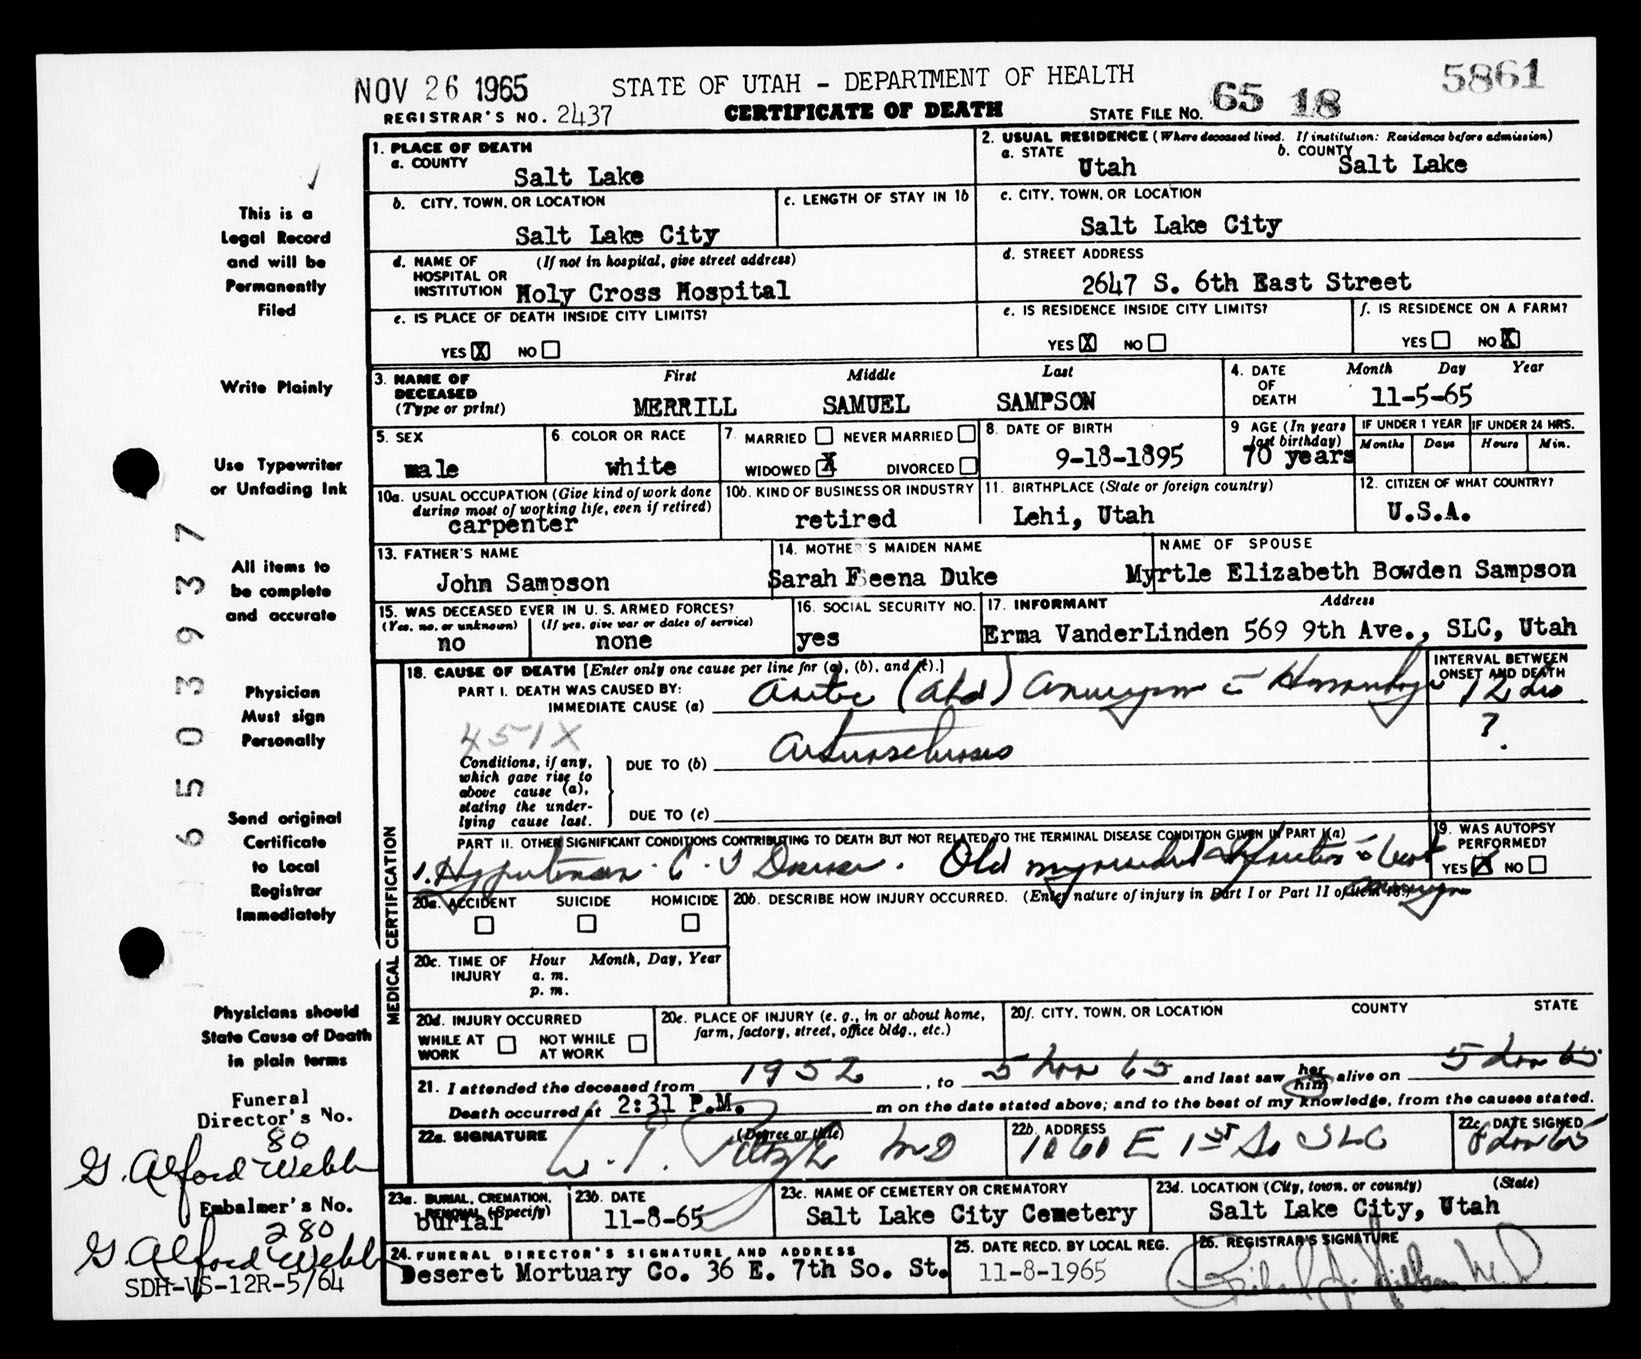 NOV 26 1965
STATE OF UTAH - DEPARTMENT OF HEALTH
5861
REGISTRAR'S NO. 2437
CERTIFICATE OF DEATH
STATE FILE NO. 65 18
This is a
Legal Record
and will be
Permanently
Filed
Write Plainly
Use Typewriter
or Unfading Ink
All items to
be complete
and accurate
Physician
Must sign
Personally
Send original
Certificate
to Local
Registrar
Immediately
Physicians should
State Cause of Death
in plain terms
Funeral
Director's No.
80
G. Alford Webb
Embalmer's No.
280
G Alford Webb
SDH-VS-12R-5/64
6503937
1. PLACE OF DEATH
a. COUNTY
Salt Lake
2. USUAL RESIDENCE (Where deceased lived. If institution: Residence before admission)
a. STATE Utah b. COUNTY Salt Lake
b. CITY, TOWN, OR LOCATION
Salt Lake City
c. LENGTH OF STAY IN 1b
c. CITY, TOWN, OR LOCATION
Salt Lake City
d. NAME OF HOSPITAL OR INSTITUTION (If not in hospital, give street address)
Holy Cross Hospital
d. STREET ADDRESS
2647 S. 6th East Street
e. IS PLACE OF DEATH INSIDE CITY LIMITS?
YES X NO
e. IS RESIDENCE INSIDE CITY LIMITS?
YES X NO
f. IS RESIDENCE ON A FARM?
YES NO X
3. NAME OF DECEASED (Type or print)
First Middle Last
MERRILL SAMUEL SAMPSON
4. DATE OF DEATH Month Day Year
11-5-65
5. SEX
male
6. COLOR OR RACE
white
7. MARRIED NEVER MARRIED
WIDOWED X DIVORCED
8. DATE OF BIRTH
9-18-1895
9 AGE (In years last birthday)
70 years
IF UNDER 1 YEAR
Months Days
IF UNDER 24 HRS.
Hours Min.
10a. USUAL OCCUPATION (Give kind of work done during most of working life, even if retired)
carpenter
10b. KIND OF BUSINESS OR INDUSTRY
retired
11. BIRTHPLACE (State or foreign country)
Lehi, Utah
12. CITIZEN OF WHAT COUNTRY?
U.S.A.
13. FATHER'S NAME
John Sampson
14. MOTHER'S MAIDEN NAME
Sarah Duke
NAME OF SPOUSE
Myrtle Elizabeth Bowden Sampson
15. WAS DECEASED EVER IN U. S. ARMED FORCES?
(Yes, no, or unknown) (If yes, give war or dates of service)
no none
16. SOCIAL SECURITY NO.
yes
17. INFORMANT Address
Erma VanderLinden 569 9th Ave., SLC, Utah
MEDICAL CERTIFICATION
18. CAUSE OF DEATH [Enter only one cause per line for (a), (b), and (c).]
PART I. DEATH WAS CAUSED BY:
IMMEDIATE CAUSE (a) Aortic (abd) Aneurysm c Hemorrhage
INTERVAL BETWEEN ONSET AND DEATH
12 hrs
?
451X
Conditions, if any, which gave rise to above cause (a), stating the underlying cause last.
DUE TO (b) Arteriosclerosis
DUE TO (c)
PART II. OTHER SIGNIFICANT CONDITIONS CONTRIBUTING TO DEATH BUT NOT RELATED TO THE TERMINAL DISEASE CONDITION GIVEN IN PART I(a)
1. Hypertension C V Disease. Old myocardial infarction
19. WAS AUTOPSY PERFORMED?
YES X NO
20a. ACCIDENT SUICIDE HOMICIDE
20b. DESCRIBE HOW INJURY OCCURRED. (Enter nature of injury in Part I or Part II of item 18.)
20c. TIME OF INJURY Hour Month, Day, Year
a. m.
p. m.
20d. INJURY OCCURRED
WHILE AT WORK NOT WHILE AT WORK
20e. PLACE OF INJURY (e. g., in or about home, farm, factory, street, office bldg., etc.)
20f. CITY, TOWN, OR LOCATION COUNTY STATE
21. I attended the deceased from 1952, to 5 Nov 65 and last saw her him alive on 5 Nov 65.
Death occurred at 2:31 P.M. m on the date stated above; and to the best of my knowledge, from the causes stated.
22a. SIGNATURE (Degree or title)
W. T. MD
22b. ADDRESS
1060 E 1st So SLC
22c. DATE SIGNED
8 Nov 65
23a. BURIAL, CREMATION, REMOVAL (Specify)
burial
23b. DATE
11-8-65
23c. NAME OF CEMETERY OR CREMATORY
Salt Lake City Cemetery
23d. LOCATION (City, town, or county) (State)
Salt Lake City, Utah
24. FUNERAL DIRECTOR'S SIGNATURE AND ADDRESS
Deseret Mortuary Co. 36 E. 7th So. St.
25. DATE RECD. BY LOCAL REG.
11-8-1965
26. REGISTRAR'S SIGNATURE
M.D.